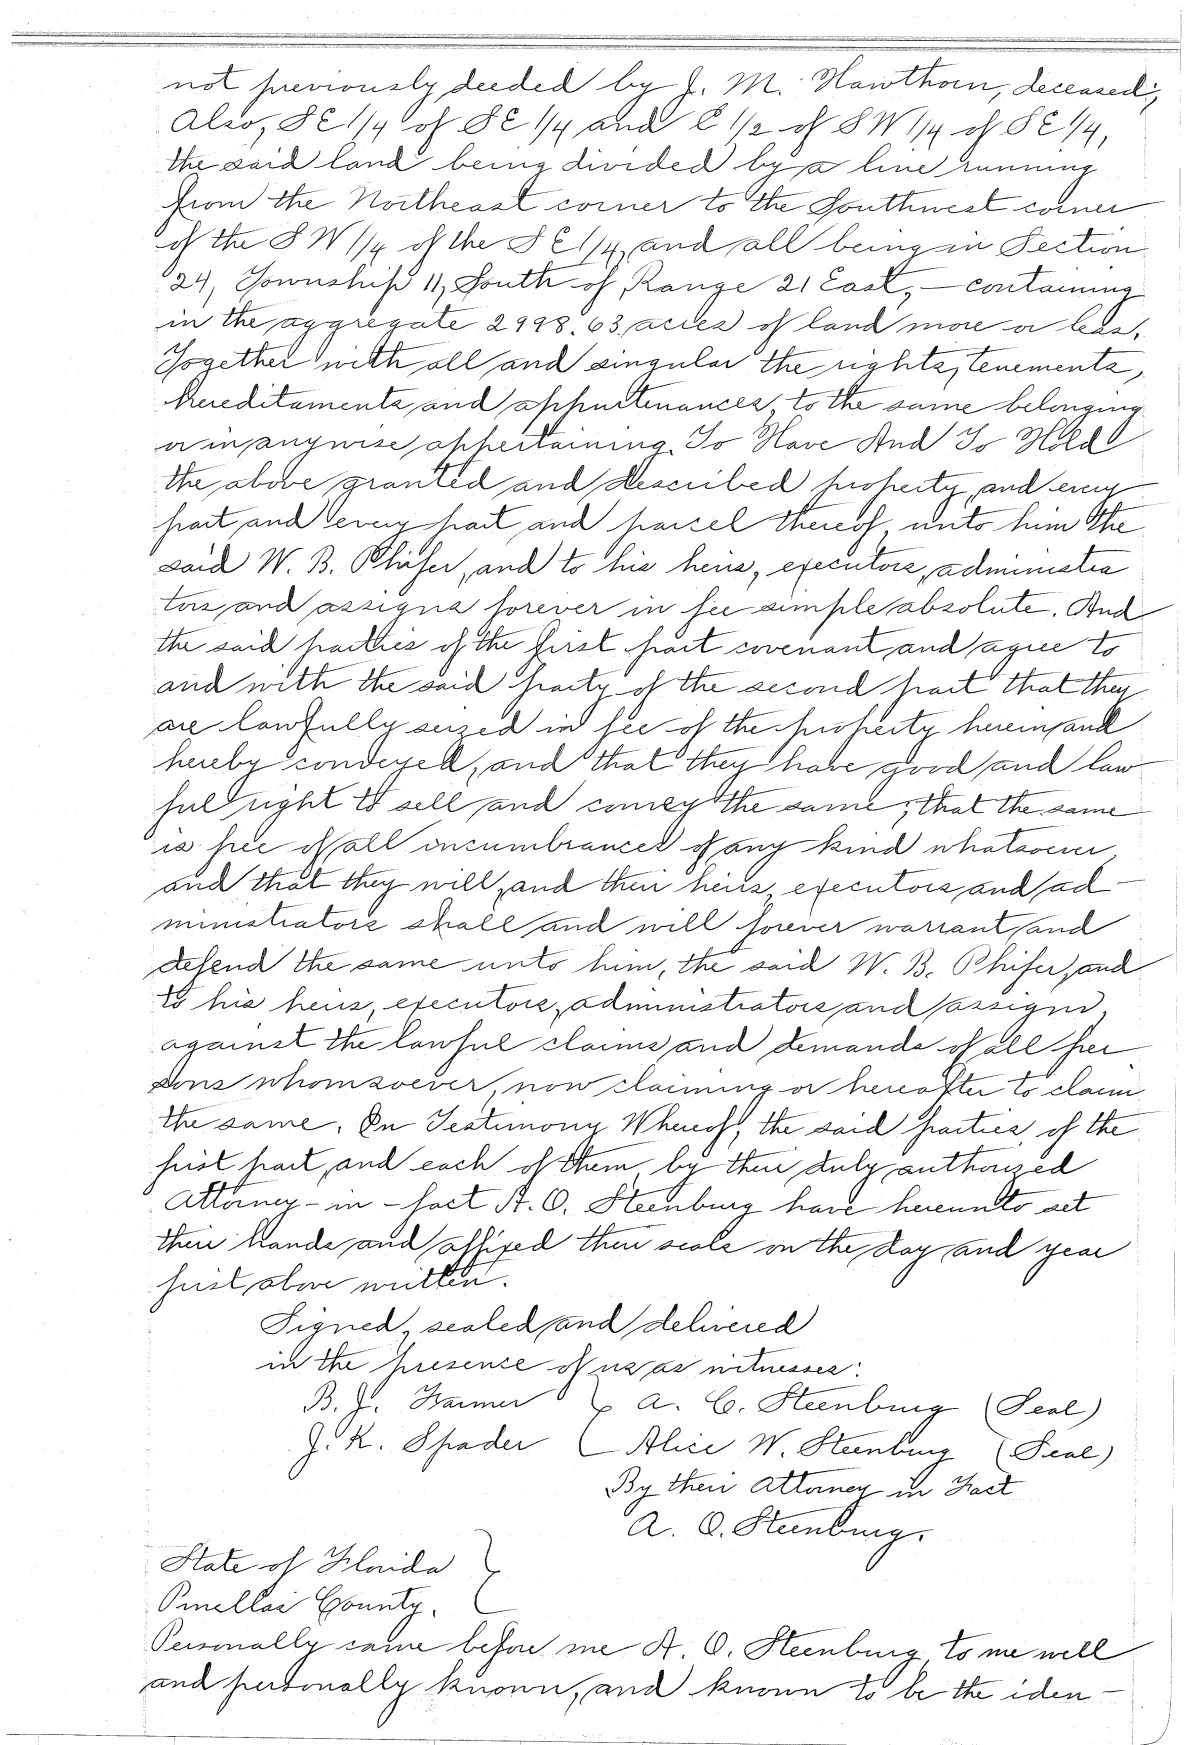 not previously deeded by J. M. Hawthorn, deceased;
Also, SE 1/4 of SE 1/4 and E 1/2 of SW 1/4 of SE 1/4,
the said land being divided by a line running
from the Northeast corner to the Southwest corner
of the SW 1/4 of the SE 1/4, and all being in Section
24, Township 11, South of Range 21 East, — containing
in the aggregate 2998.63 acres of land more or less.
Together with all and singular the rights, tenements,
hereditaments and appurtenances, to the same belonging
or in anywise appertaining. To Have And To Hold
the above granted and described property, and every
part and every part and parcel thereof, unto him the
said W. B. Phifer, and to his heirs, executors, administra
tors and assigns forever in fee simple absolute. And
the said parties of the first part covenant and agree to
and with the said party of the second part that they
are lawfully seized in fee of the property herein and
hereby conveyed, and that they have good and law
ful right to sell and convey the same; that the same
is free of all incumbrances of any kind whatsoever,
and that they will, and their heirs, executors and ad-
ministrators shall and will forever warrant and
defend the same unto him, the said W. B. Phifer, and
to his heirs, executors, administrators and assigns,
against the lawful claims and demands of all per
sons whomsoever, now claiming or hereafter to claim
the same. In Testimony Whereof, the said parties of the
first part, and each of them, by their duly authorized
Attorney-in-fact A. O. Steenburg have hereunto set
their hands and affixed their seals on the day and year
first above written.
Signed, sealed and delivered
in the presence of us as witnesses:
B. J. Farmer } A. C. Steenburg (Seal)
J. K. Spader Alice W. Steenburg (Seal)
By their Attorney in Fact
A. O. Steenburg.
State of Florida }
Pinellas County.
Personally came before me A. O. Steenburg, to me well
and personally known, and known to be the iden-